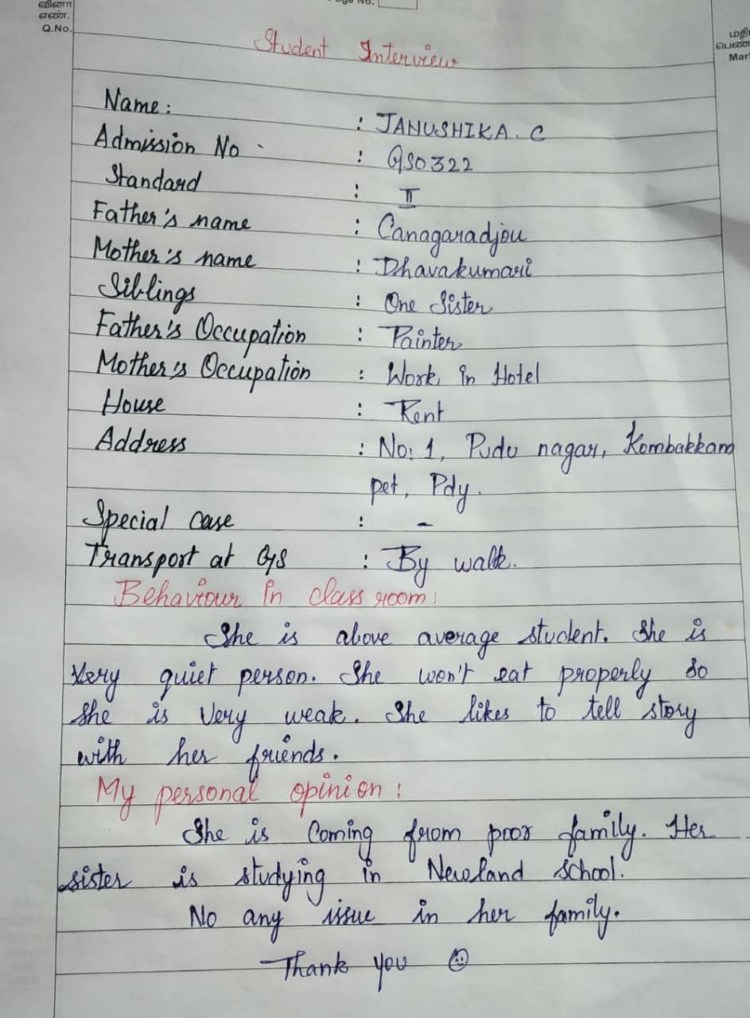 வினா
எண்.
Q.No.
Page No.
மதி
பெண்
Mar
Student Interview
Name: : JANUSHIKA. C
Admission No. : GS0322
Standard : II
Father's name : Canagaradjou
Mother's name : Dhavakumari
Siblings : One Sister
Father's Occupation : Painter
Mother's Occupation : Work in Hotel
House : Rent
Address : No: 1, Pudu nagar, Kombakkam
pet, Pdy.
Special case : -
Transport at GS : By walk.
Behaviour in class room:
She is above average student. She is
very quiet person. She won't eat properly so
she is very weak. She likes to tell story
with her friends.
My personal opinion:
She is coming from poor family. Her
sister is studying in Newland school.
No any issue in her family.
Thank you ☺